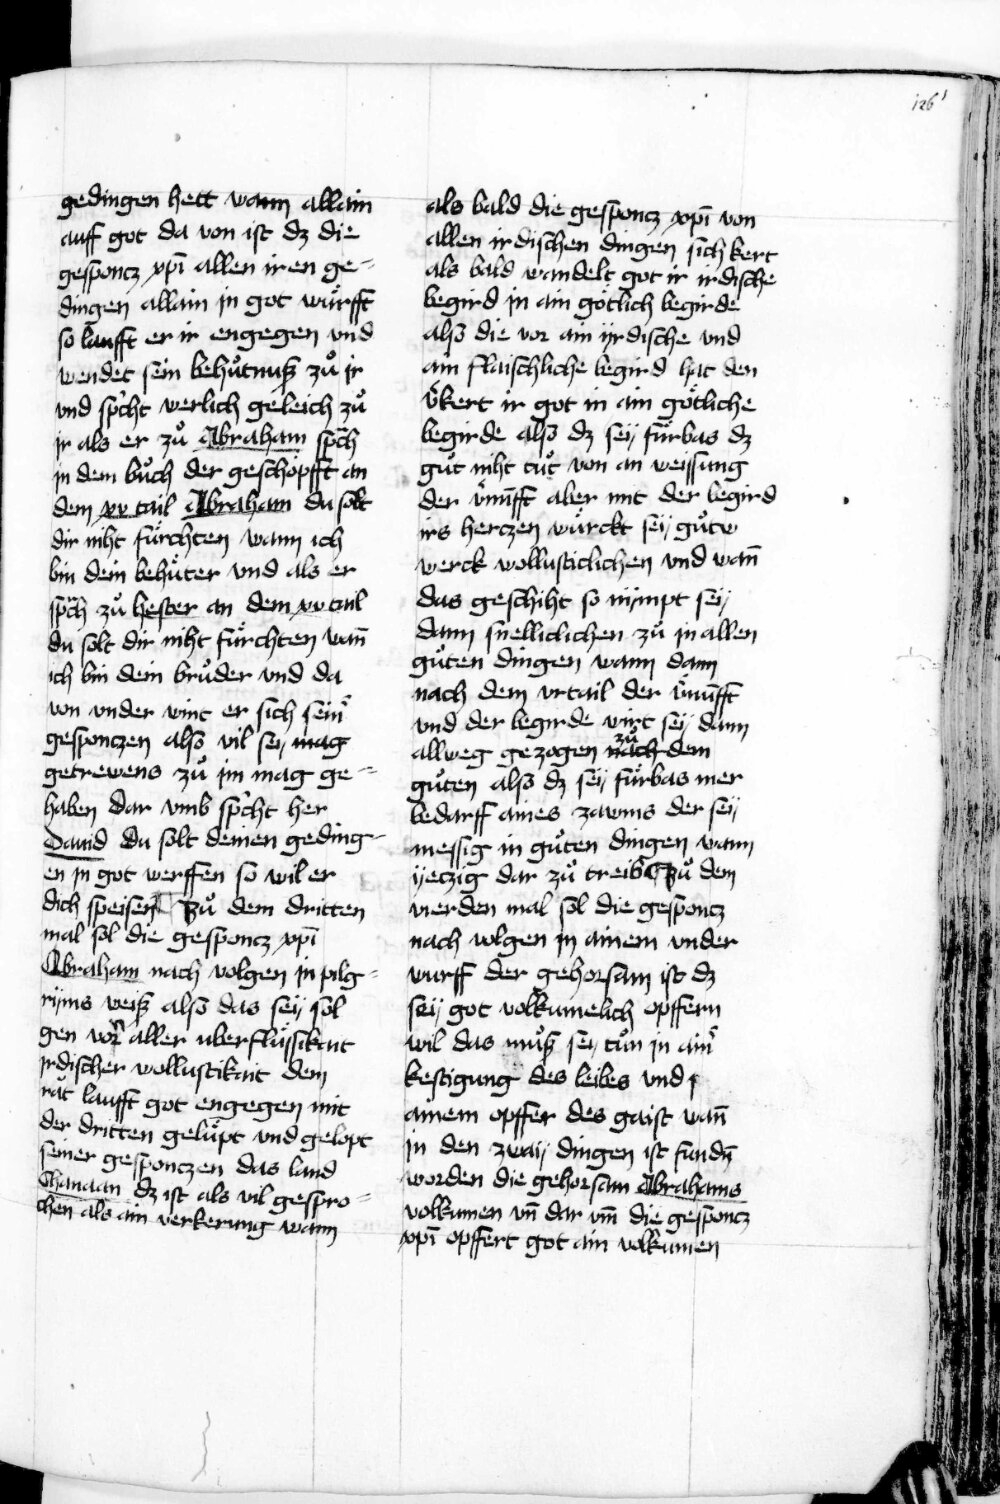 126
gedingen hett wann allain
auff got da von ist dz die
gesponcz xpī allen iren ge=
dingen allain in got wu̇rfft
so laufft er ir engegen vnd
wendet sein behu̇tnuß zuͦ ir
vnd spͥcht werlich geleich zuͦ
ir als er zuͦ Abraham spͣch
in dem buͦch der geschöpfft an
dem xv tail Abraham du solt
dir niht fu̇rchten wann ich
bin dein behu̇ter vnd als er
spͣch zuͦ hester an dem xv tail
du solt dir niht fu̇rchten wañ
ich bin dein bruͦder vnd da
von vnder wint er sich sein᷑
gesponczen also vil seÿ mag
getrewens zuͦ im mag ge=
haben Dar vmb spͥcht her
Dauid du solt deinen geding=
en in got werffen so wil er
dich speisen Zuͦ dem dritten
mal sol die gesponcz xpī
Abraham nach volgen in pilg=
ryms weiß also das seÿ sol
gen vor᷑ aller uberflu̇ssikait
irdischer wollustikait dem
rat laufft got engegen mit
der dritten gelu̇pt vnd gelopt
seiner gesponczen das land
Chanaan dz ist als vil gespro=
chen als ain verkerung wann
als bald die gesponcz xpī von
allen irdischen dingen sich kert
als bald wandelt got ir irdische
begird in ain götlich begirde
also die vor ain ÿrdische vnd
ain flaischliche begird hat den
v᷑kert ir got in ain götliche
begirde also dz seÿ fu̇rbas dz
guͦt niht tuͦt von an weissung
der v᷑nu̅fft aber mit der begird
irs herczen wu̇rckt seÿ guͦtw
werck wollusticlichen vnd wañ
das geschiht so nÿmpt seÿ
dann snelliclichen zuͦ in allen
guͦten dingen wann dann
nach dem vrtail der v᷑nu̅fft
vnd der begirde wirt seÿ dann
allweg gezogen zuͦ nach dem
guͦten also dz seÿ fu̇rbas mer
bedarff aines zawms der seÿ
messig in guͦten dingen wann
ÿeczig dar zuͦ treib᷑ Zuͦ dem
vierden mal sol die gesponcz
nach volgen in ainem vnder
wurff der gehorsam ist dz
seÿ got volkumelich opffern
wil das muͦß seÿ tuͦn in ain᷑
kestigung des leibes vnd i
ainem opffer des gaist wañ
in den zwaÿ dingen ist fundn̄
worden die gehorsam Abrahams
volkumen vn̄ dar vm̄ die gesponcz
xpī opffert got ain volkumen